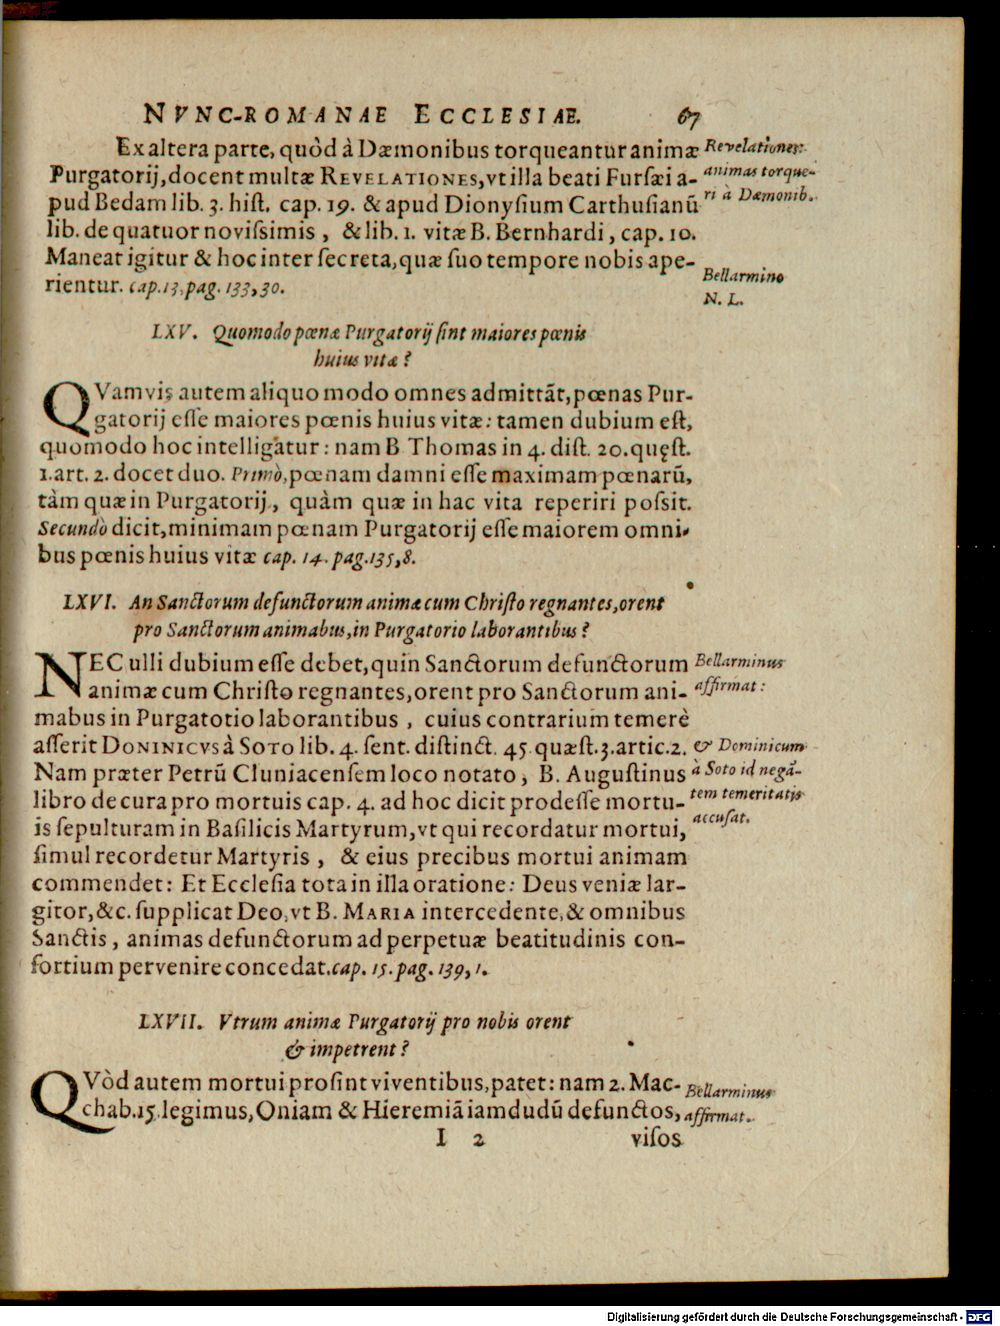 NVNC-ROMANAE ECCLESIAE. 67
Ex altera parte, quòd à Dæmonibus torqueantur animæ
Purgatorij, docent multæ REVELATIONES, vt illa beati Furſæi a-
pud Bedam lib. 3. hiſt. cap. 19. & apud Dionyſium Carthuſianũ
lib. de quatuor noviſsimis, & lib. 1. vitæ B. Bernhardi, cap. 10.
Maneat igitur & hoc inter ſecreta, quæ ſuo tempore nobis ape-
rientur. cap. 13. pag. 133, 30.
Revelationes:
animas torque-
ri à Dæmonib.
Bellarmino
N. L.
LXV. Quomodo pœnæ Purgatorij ſint maiores pœnis
huius vitæ?
QVamvis autem aliquo modo omnes admittãt, pœnas Pur-
gatorij eſſe maiores pœnis huius vitæ: tamen dubium eſt,
quomodo hoc intelligatur: nam B Thomas in 4. diſt. 20. quęſt.
1. art. 2. docet duo. Primò, pœnam damni eſſe maximam pœnarũ,
tàm quæ in Purgatorij, quàm quæ in hac vita reperiri poſsit.
Secundò dicit, minimam pœnam Purgatorij eſſe maiorem omni-
bus pœnis huius vitæ cap. 14. pag. 135, 8.
LXVI. An Sanctorum defunctorum animæ cum Chriſto regnantes, orent
pro Sanctorum animabus, in Purgatorio laborantibus?
NEC ulli dubium eſſe debet, quin Sanctorum defunctorum
animæ cum Chriſto regnantes, orent pro Sanctorum ani-
mabus in Purgatotio laborantibus, cuius contrarium temerè
aſſerit DONINICVS à SOTO lib. 4. ſent. diſtinct. 45. quæſt. 3. artic. 2.
Nam præter Petrũ Cluniacenſem loco notato, B. Auguſtinus
libro de cura pro mortuis cap. 4. ad hoc dicit prodeſſe mortu-
is ſepulturam in Baſilicis Martyrum, vt qui recordatur mortui,
ſimul recordetur Martyris, & eius precibus mortui animam
commendet: Et Eccleſia tota in illa oratione: Deus veniæ lar-
gitor, &c. ſupplicat Deo, vt B. MARIA intercedente, & omnibus
Sanctis, animas defunctorum ad perpetuæ beatitudinis con-
ſortium pervenire concedat. cap. 15. pag. 139, 1.
Bellarminus
affirmat:
& Dominicum
à Soto id negã-
tem temeritatis
accuſat.
LXVII. Vtrum animæ Purgatorij pro nobis orent
& impetrent?
QVòd autem mortui proſint viventibus, patet: nam 2. Mac-
chab. 15. legimus, Oniam & Hieremiã iamdudũ defunctos,
Bellarminus
affirmat.
I 2 viſos
Digitalisierung gefördert durch die Deutsche Forschungsgemeinschaft - DFG